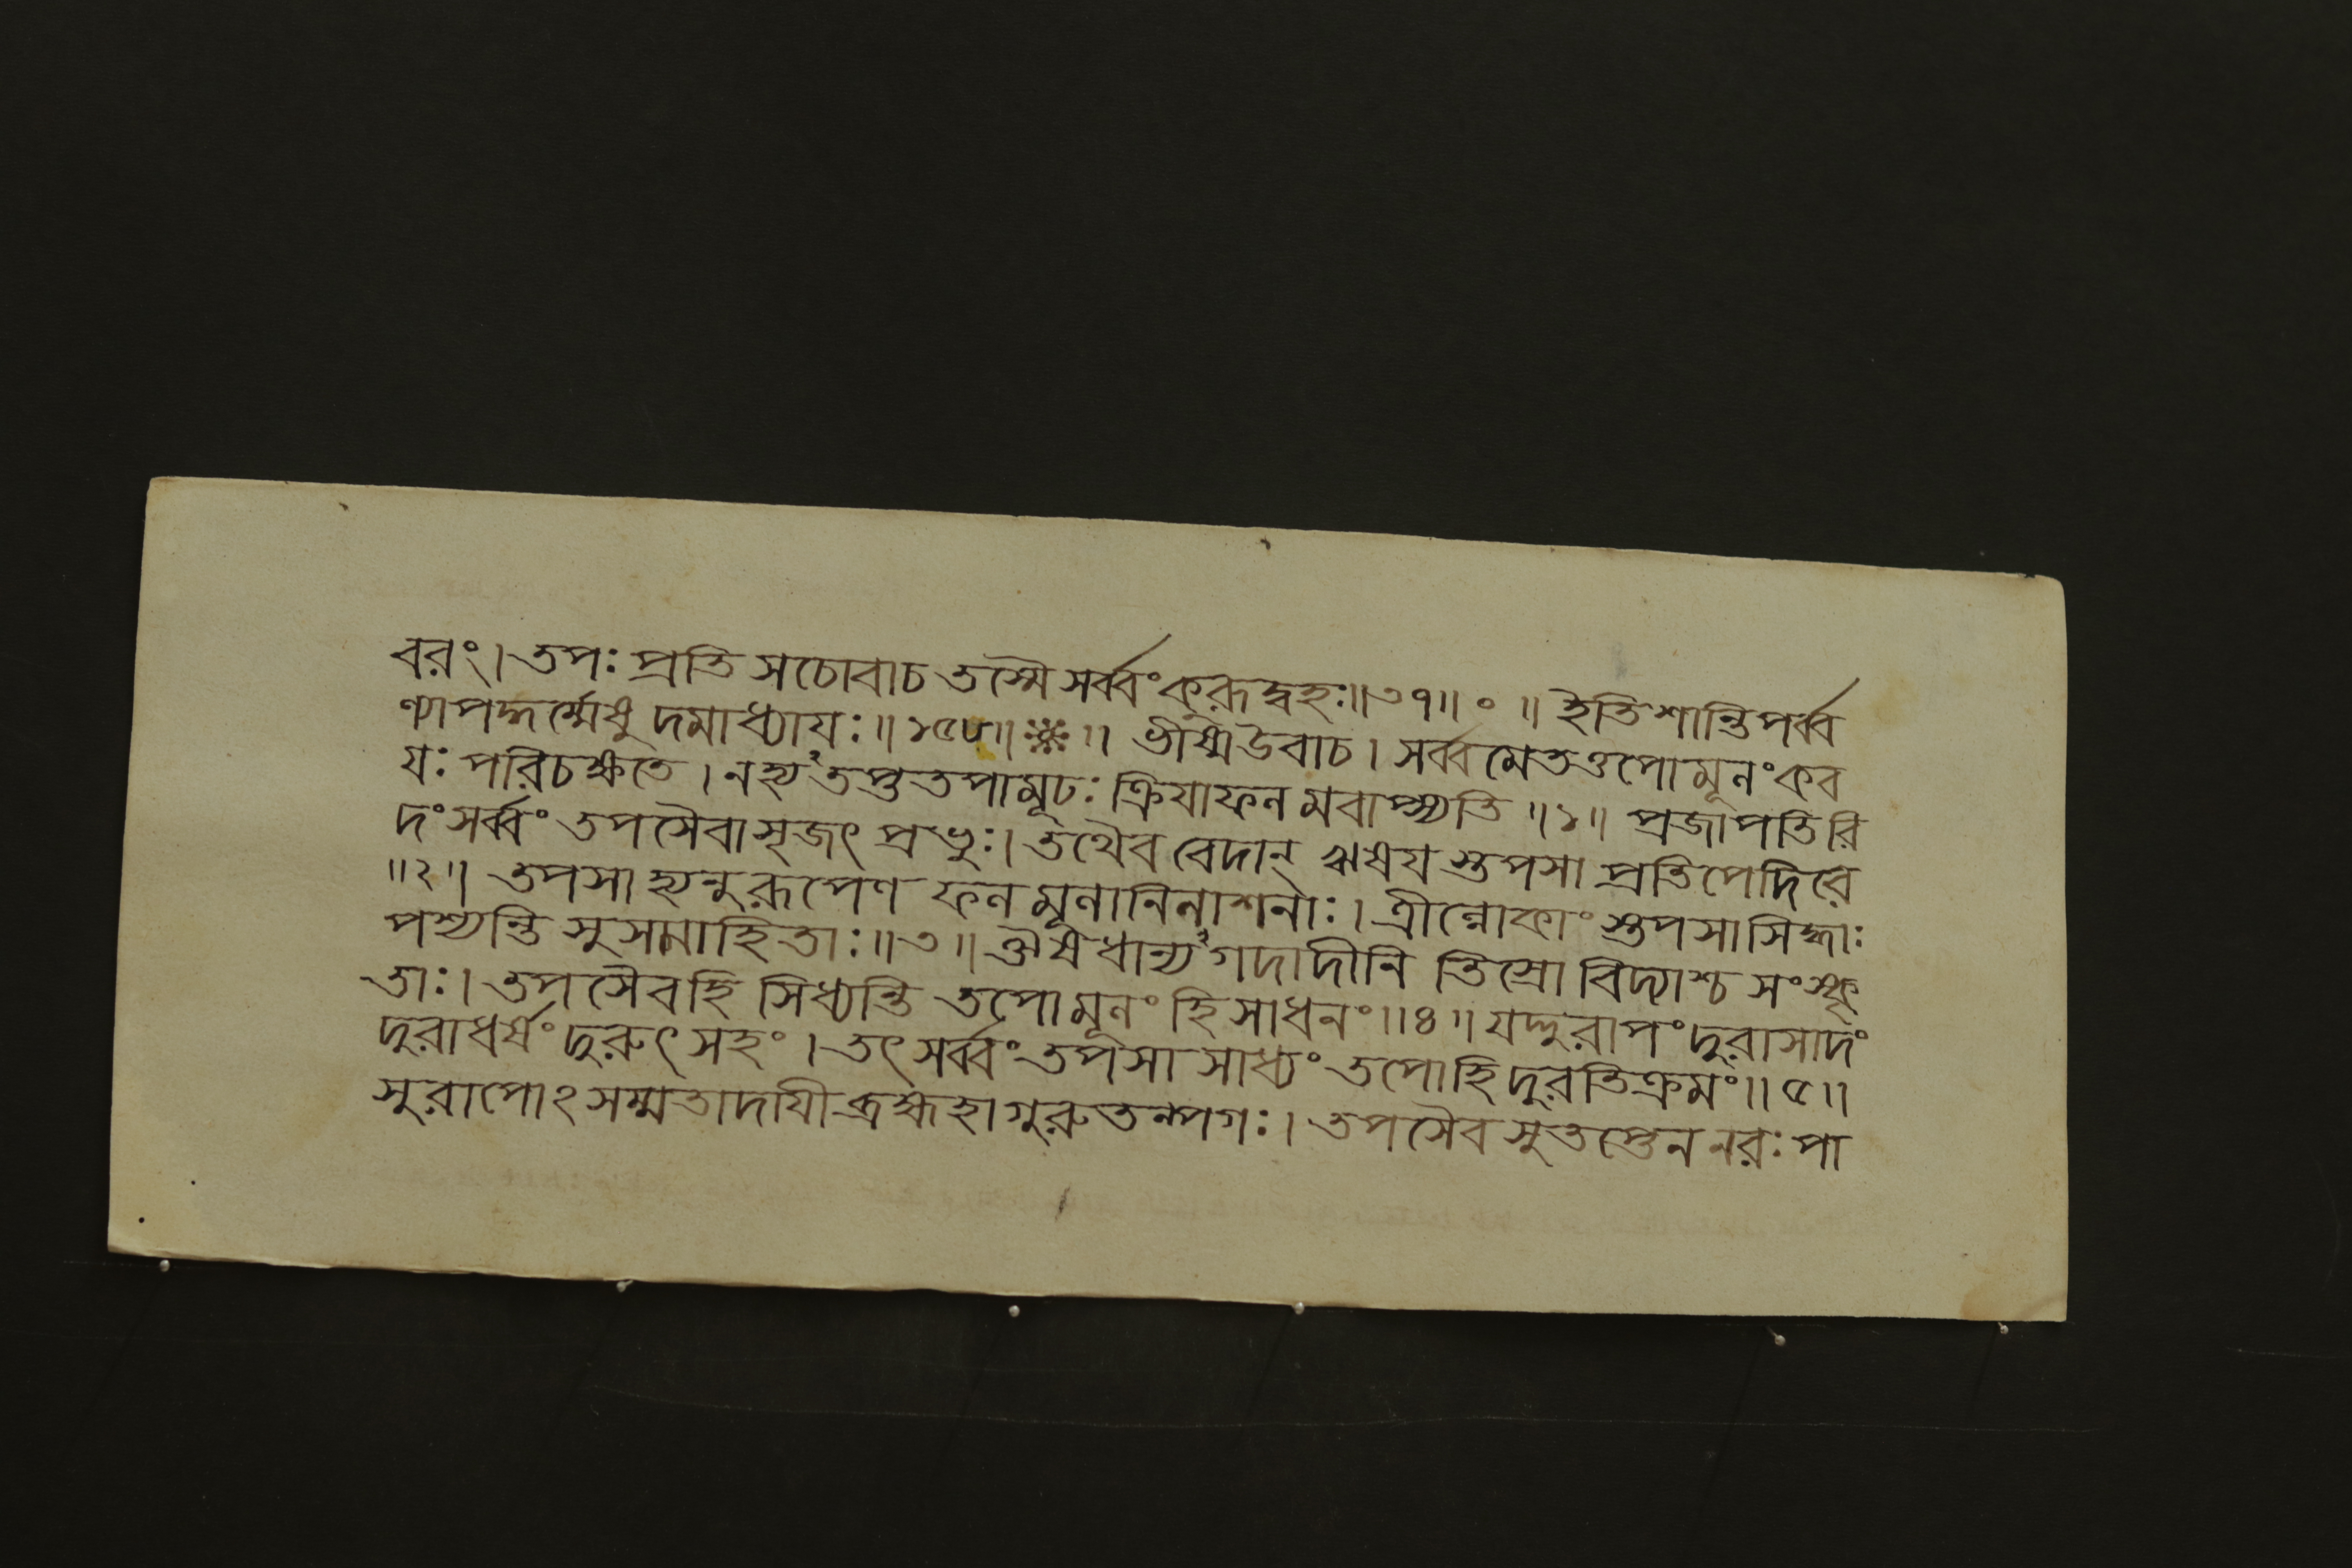 বরং। তপঃ প্রতি সচোবাচ তস্মৈ সর্ব্বং কুরূদ্বহঃ॥৩৭॥ ॰ ॥ ইতি শান্তিপর্ব্ব
ণ্যাপদ্ধর্ম্মেষু দমাধ্যাযঃ॥ ১৫৮॥ ※ ॥ ভীষ্মউবাচ। সর্ব্বমেতত্তপোমূলং কব
যঃ পরিচক্ষতে। নহ্যতপ্ততপামূঢঃ ক্রিযাফলমবাপ্স্যতি ॥১॥ প্রজাপতিরি
দং সর্ব্বং তপসৈবাসৃজৎ প্রভুঃ। তথৈব বেদান্ ঋষযস্তপসা প্রতিপেদিরে
॥২॥ তপসাহ্যনুরূপেণ ফলমূলানিলাশনাঃ। ত্রীল্লোকাংস্তপসাসিদ্ধাঃ
পশ্যন্তি সুসমাহিতাঃ॥৩॥ ঔষধান্যগদাদীনি তিস্রো বিদ্যাশ্চ সংস্কৃ
তাঃ। তপসৈবহি সিধ্যন্তি তপোমূলং হি সাধনং॥৪॥ যদ্দুরাপং দুরাসাদং
দুরাধর্ষং দুরুৎসহং। তৎ সর্ব্বং তপসা সাধ্যং তপোহি দুরতিক্রমং॥৫॥
সুরাপোঽসম্মতাদাযী ব্রহ্মহা গুরুতল্পগঃ। তপসৈব সুতপ্তেন নরঃ পা